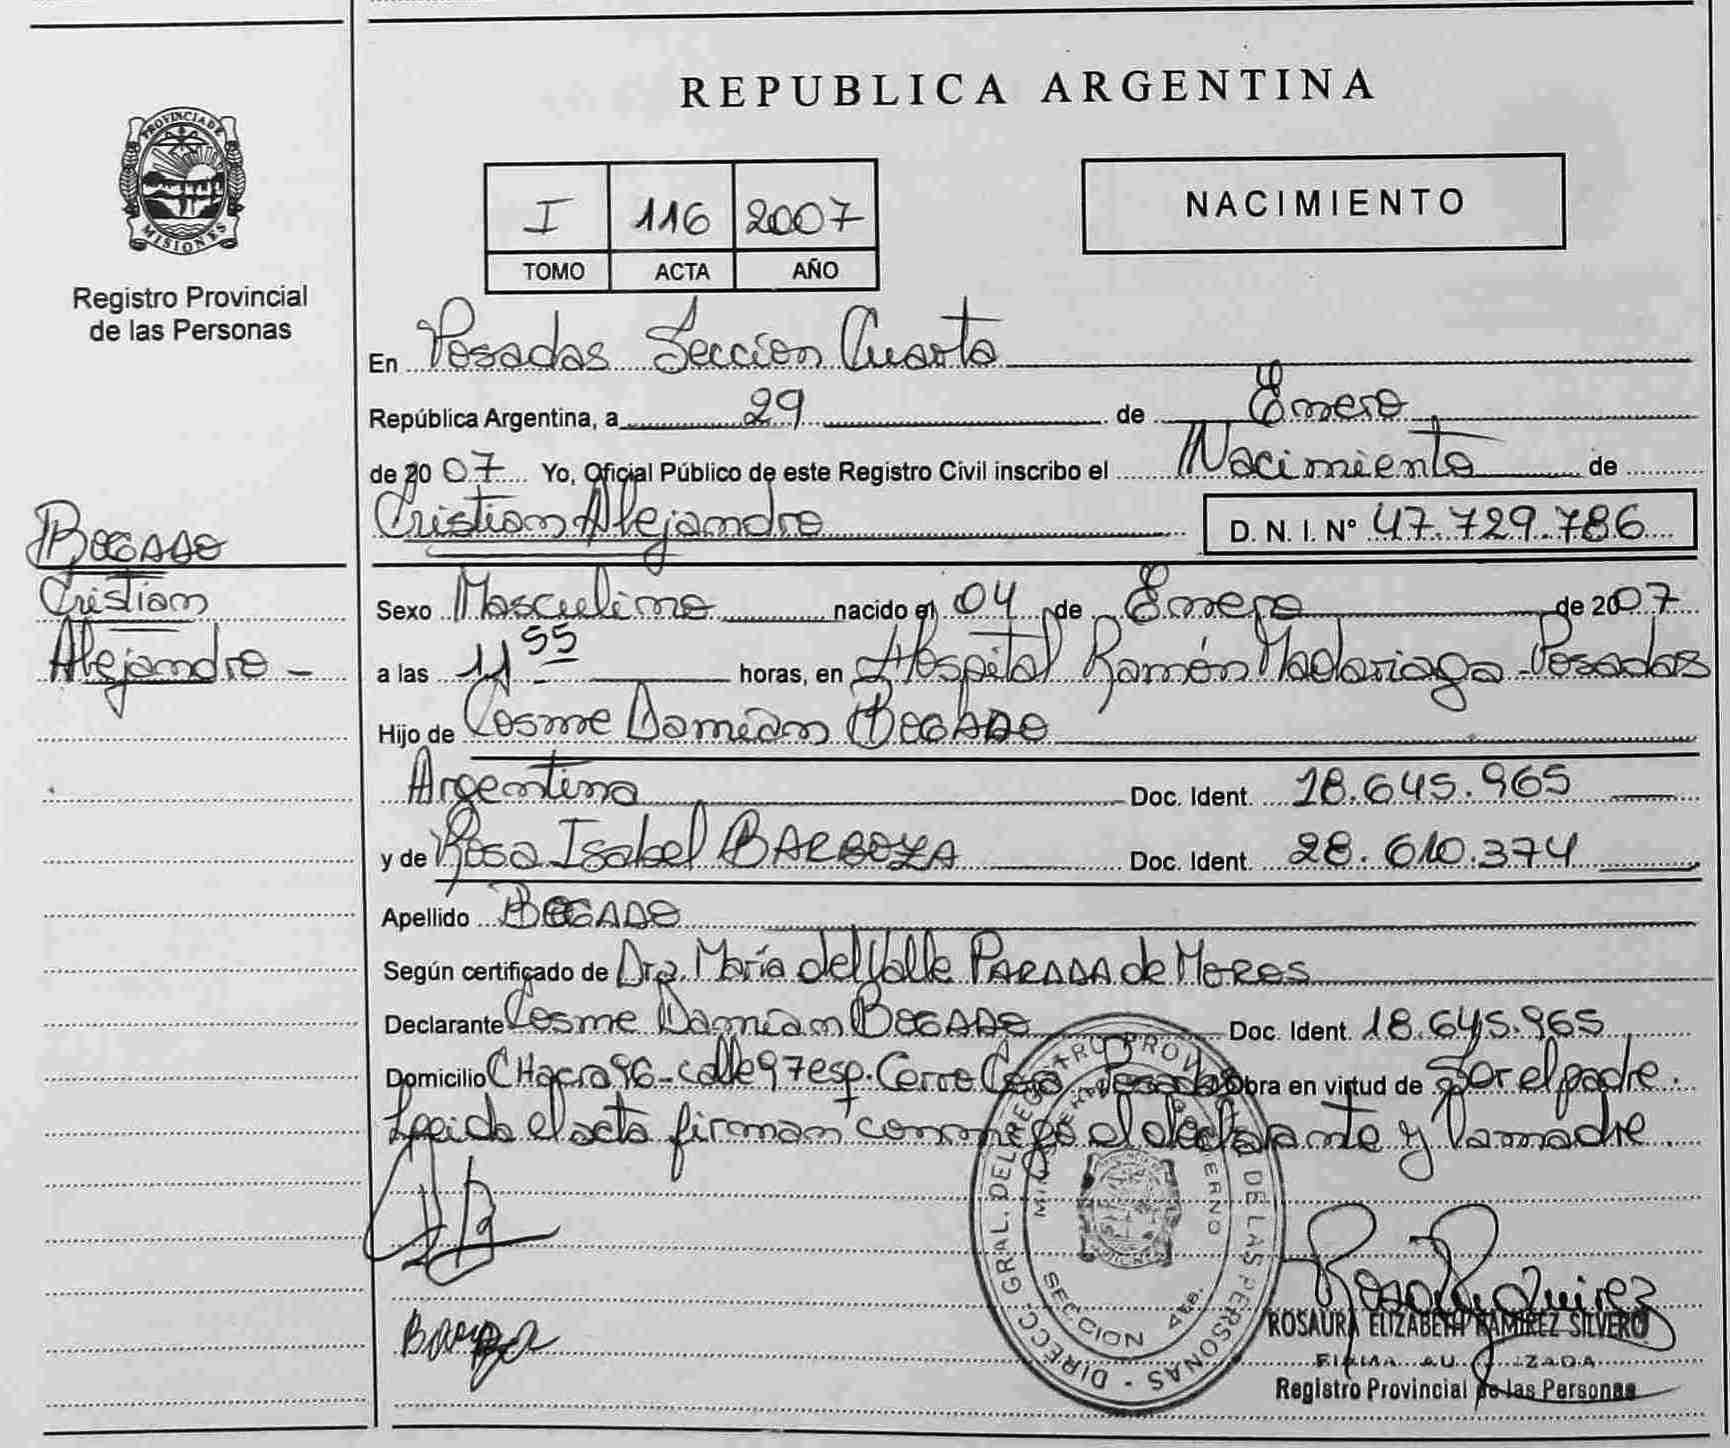 REPUBLICA ARGENTINA
PROVINCIA DE
MISIONES
Registro Provincial
de las Personas
I 116 2007
TOMO ACTA AÑO
NACIMIENTO
En Posadas Sección Cuarta
República Argentina, a 29 de Enero
de 2007 Yo, Oficial Público de este Registro Civil inscribo el Nacimiento de
Cristian Alejandro D. N. I. Nº 47.729.786
BOGADO
Cristian
Alejandro -
Sexo Masculino nacido el 04 de Enero de 2007
a las 11 55 horas, en Hospital Ramón Madariaga - Posadas
Hijo de Cosme Damián BOGADO
Argentina Doc. Ident. 18.645.965
y de Rosa Isabel BARBOZA Doc. Ident. 28.610.374
Apellido BOGADO
Según certificado de Dra. María del Valle PARADA de MORES
Declarante Cosme Damián BOGADO Doc. Ident. 18.645.965
Domicilio CHacra 96 - calle 97 esp. Cerro Cora Posadas Obra en virtud de Ser el padre.
Leida el acta firman conmigo el declarante y la madre.
DIRECC. GRAL. DEL REGISTRO PROV. DE LAS PERSONAS
SECCION 4ta.
ROSAURA ELIZABETH RAMIREZ SILVERO
FIRMA AUTORIZADA
Registro Provincial de las Personas